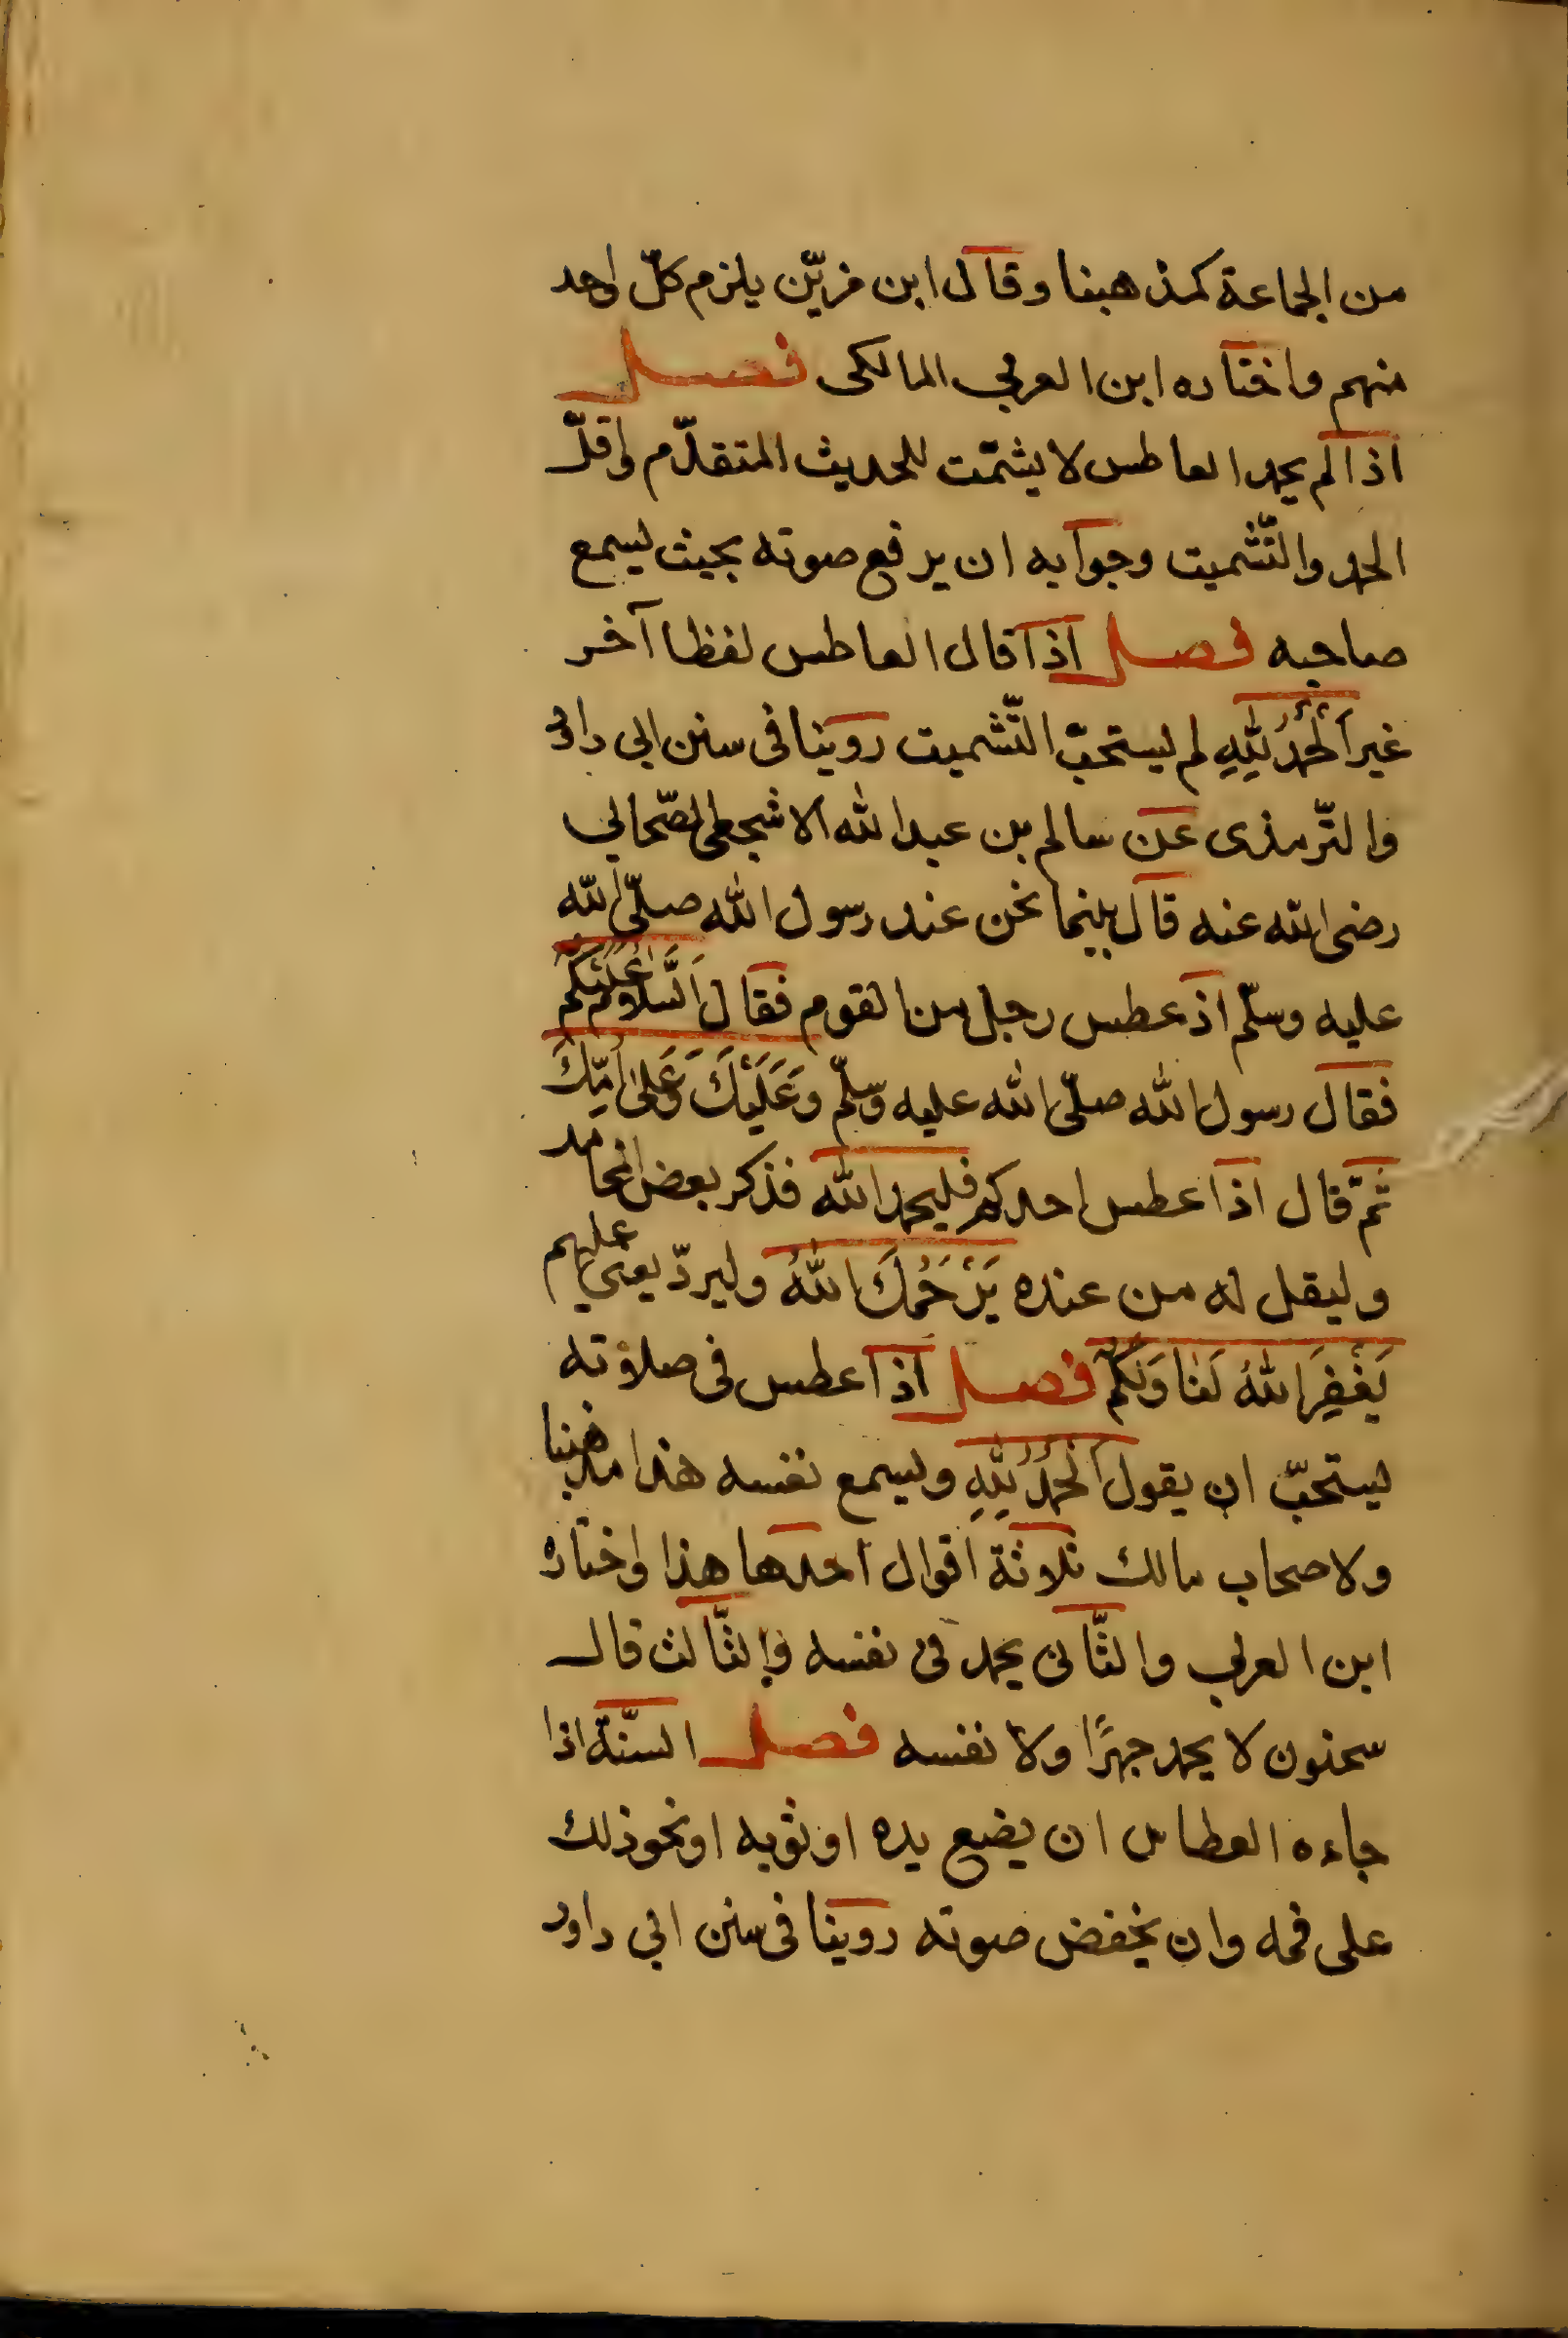 من الجماعة كمذهبنا وقال ابن مزيّن يلزم كلّ واحد
منهم واختاره ابن العربي المالكى فصل
اذا لم يحمد العاطس لا يشمّت للحديث المتقدّم واقلّ
الحمد والتّشميت وجوابه ان يرفع صوته بحيث يسمع
صاحبه فصل اذا قال العاطس لفظا آخر
غير اَلْحَمْدُ لِلّٰهِ لم يستحبّ التّشميت روينا فى سنن ابي داود
والتّرمذى عن سالم بن عبد الله الاشجعى الصّحابي
رضى الله عنه قال بينما نحن عند رسول الله صلّى الله
عليه وسلّم اذ عطس رجل من القوم فقال اَلسَّلاَمُ عَلَيْكُمْ
فقال رسول الله صلّى الله عليه وسلّم وَعَلَيْكَ وَعَلىٰ اُمِّكَ
ثمّ قال اذا عطس احدكم فليحمد الله فذكر بعض المحامد
وليقل له من عنده يَرْحَمُكَ اللّٰهُ وليردّ يعني عليهم
يَغْفِرَ اللّٰهُ لَنَا وَلَكُمْ فصل اذا عطس فى صلاوته
يستحبّ ان يقول اَلْحَمْدُ لِلّٰهِ ويسمع نفسه هذا مذهبنا
ولاصحاب مالك ثلاثة اقوال احدها هذا واختاره
ابن العربي والثّانى يحمد فى نفسه والثّالث قال
سحنون لا يحمد جهرًا ولا نفسه فصل السّنّة اذا
جاءه العطاس ان يضع يده او ثوبه او نحو ذلك
على فمه وان يخفض صوته روينا فى سنن ابي داود